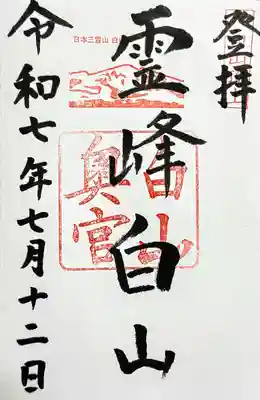 登拝
霊峰白山
令和七年七月十二日
日本三霊山 白山
白山
奥宮